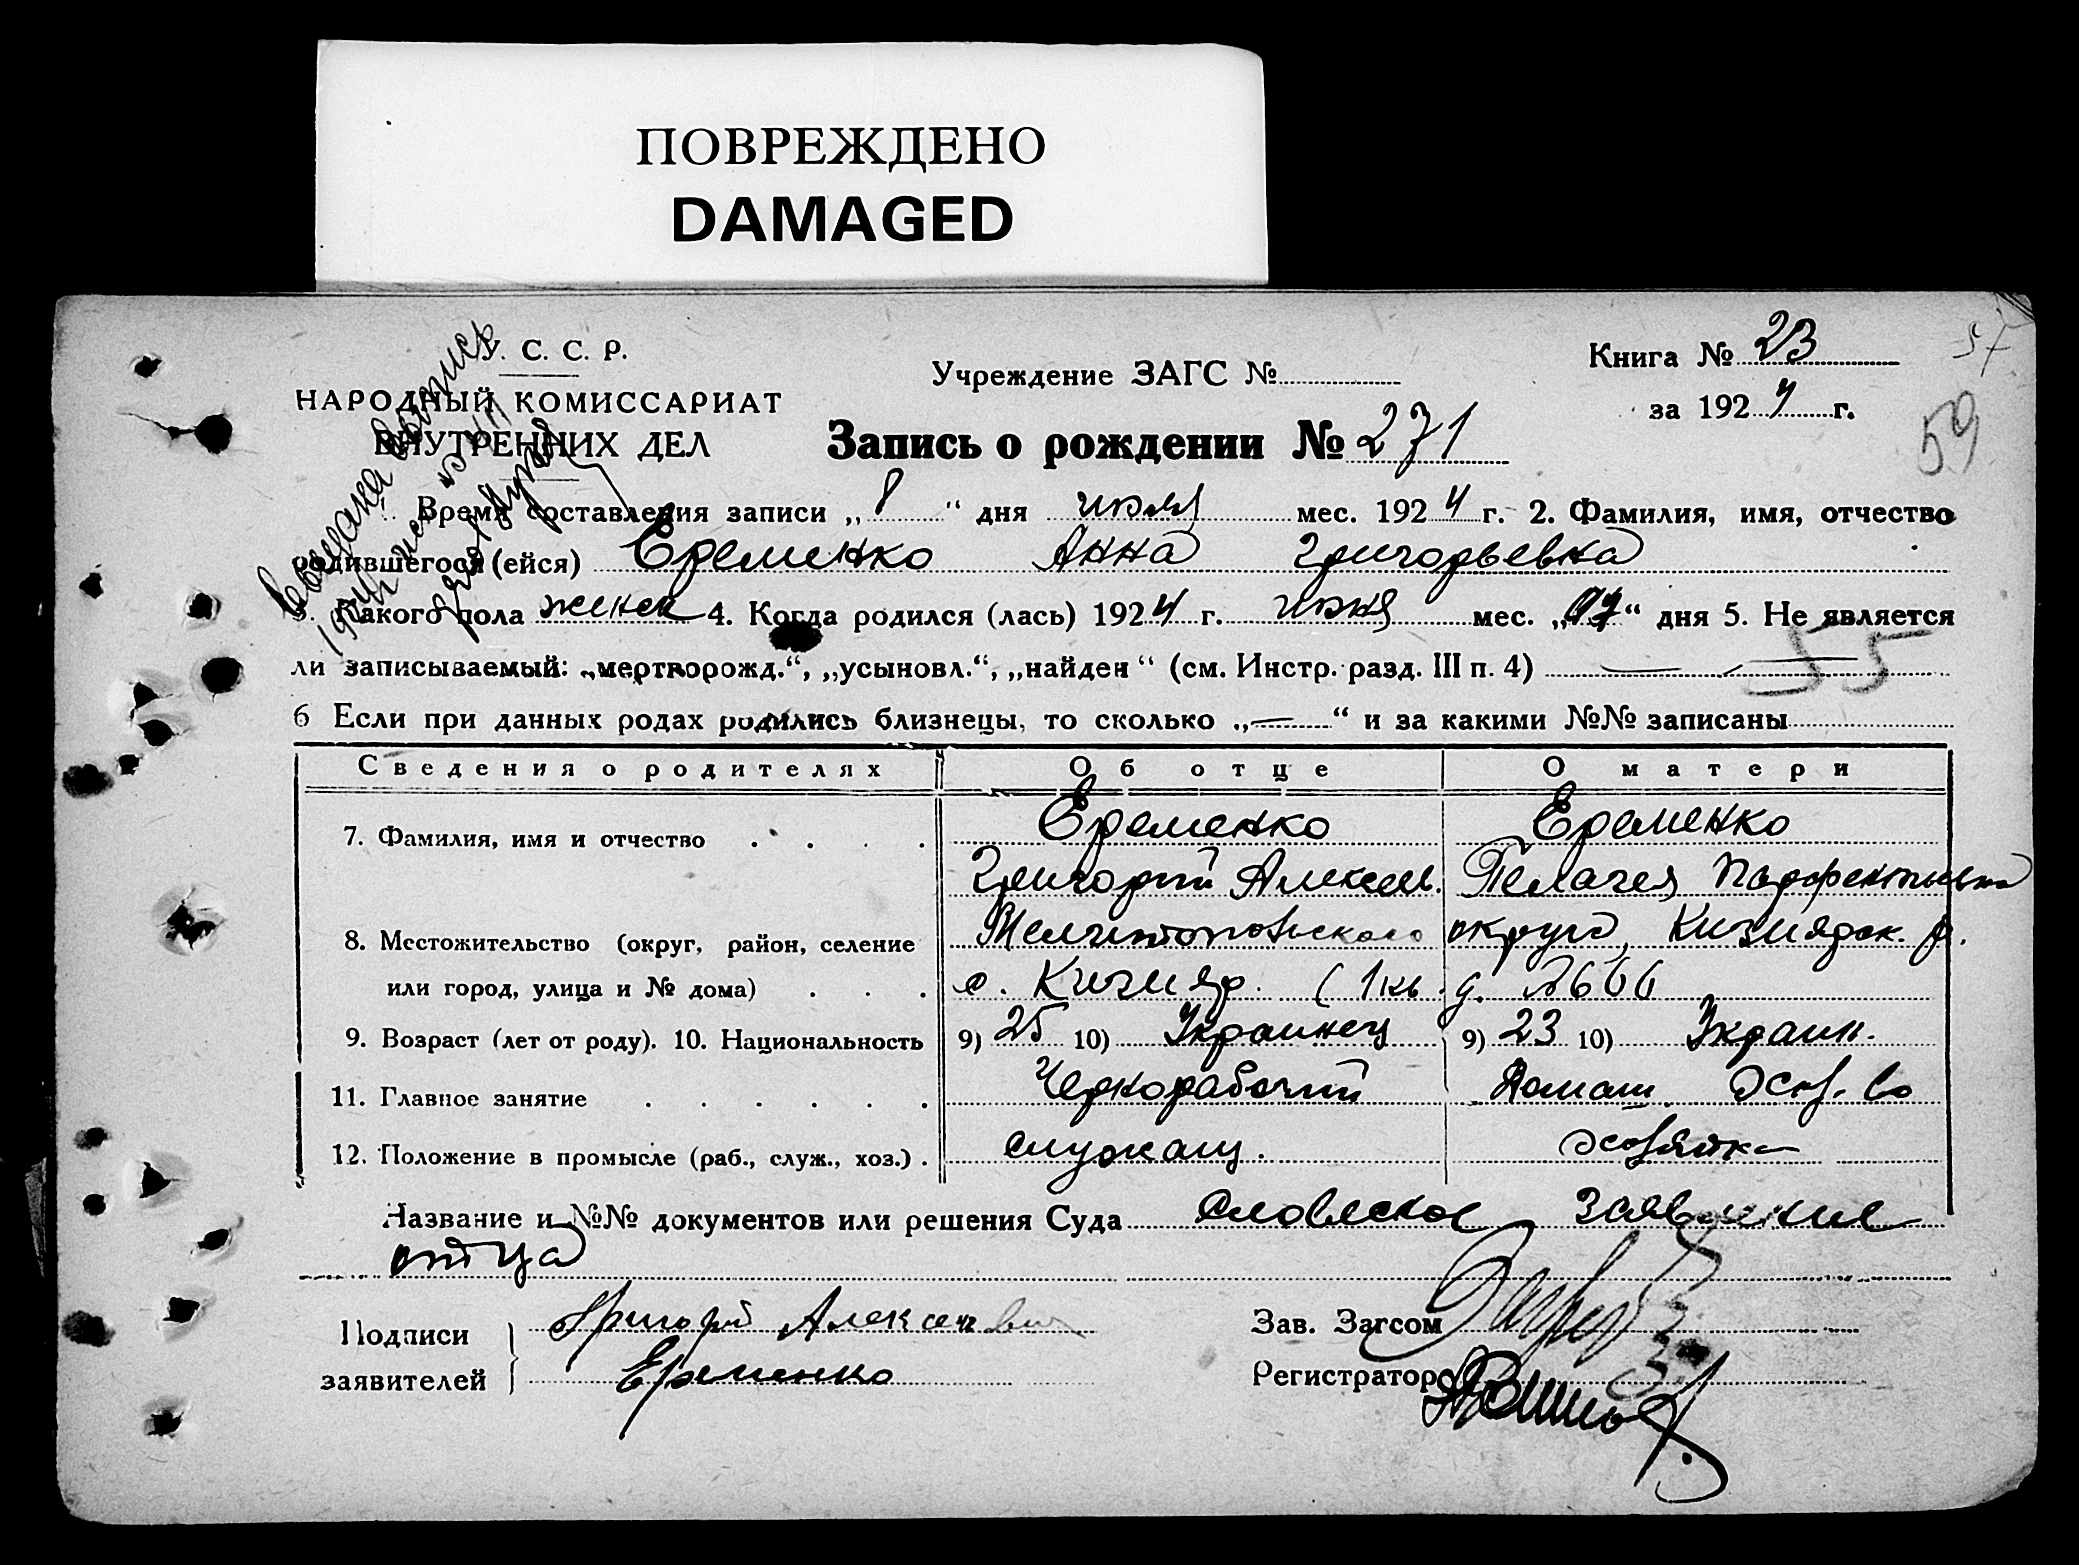 ПОВРЕЖДЕНО
DAMAGED
У. С. С. Р.
НАРОДНЫЙ КОМИССАРИАТ
ВНУТРЕННИХ ДЕЛ
Учреждение ЗАГС №
Книга № 23
за 1924 г.
57
59
Запись о рождении № 271
Время составления записи „8“ дня июля мес. 1924 г. 2. Фамилия, имя, отчество
родившегося (ейся) Еременко Анна Григорьевна
3. Какого пола женск 4. Когда родился (лась) 1924 г. июня мес. „“ дня 5. Не является
ли записываемый: „мертворожд.“, „усыновл.“, „найден“ (см. Инстр. разд. III п. 4) —
55
6 Если при данных родах родились близнецы, то сколько „—“ и за какими №№ записаны
Сведения о родителях Об отце О матери
7. Фамилия, имя и отчество Еременко Еременко
Григорий Алексеев. Пелагея
8. Местожительство (округ, район, селение Мелитопольского округа, Кизиярск. р.
или город, улица и № дома) с. Кизияр. (1 кв. д. №66
9. Возраст (лет от роду). 10. Национальность 9) 25 10) Украинец 9) 23 10) Украин.
11. Главное занятие Чернорабочий Домаш. Хоз-во
12. Положение в промысле (раб., служ., хоз.) служащ. Хозяйка
Название и №№ документов или решения Суда словесное заявление
отца
Подписи
заявителей
Григорий Алексеевич
Еременко
Зав. Загсом
Регистратор